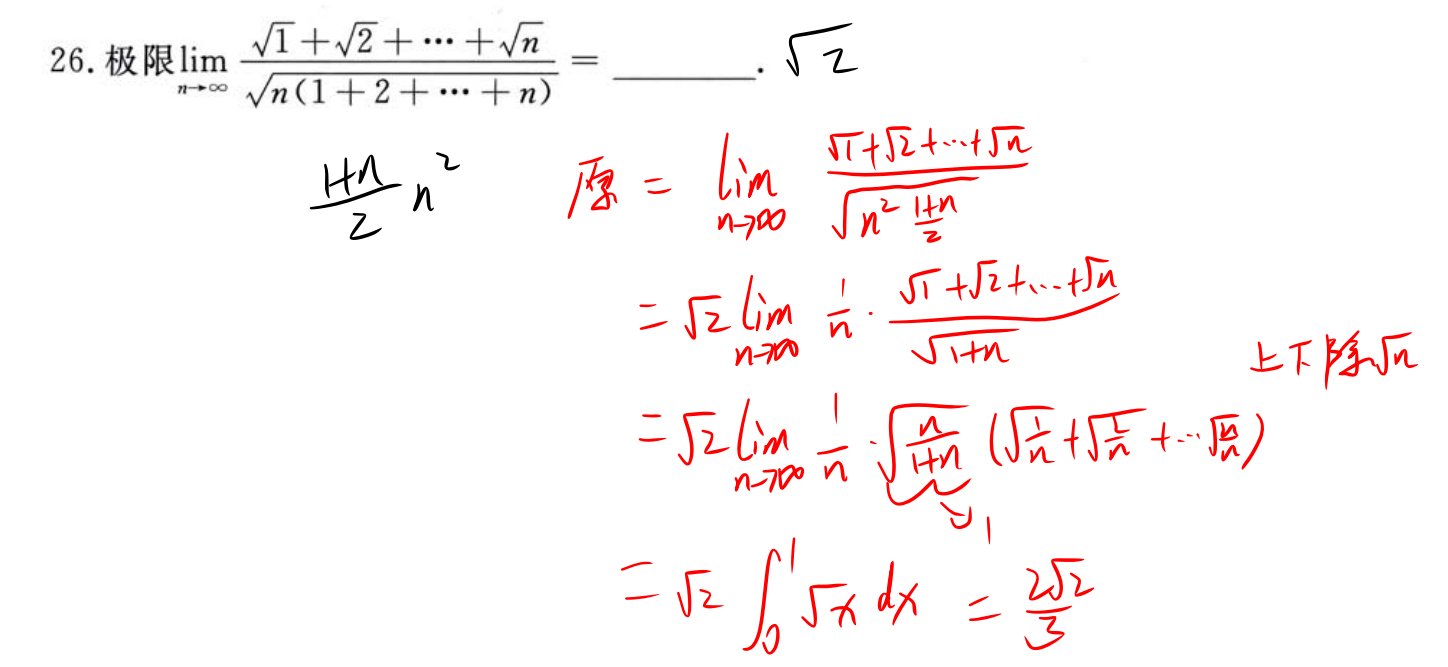 26. 极限lim_{n→∞} (√1+√2+⋯+√n)/√(n(1+2+⋯+n)) = ______. √2
(1+n)/2 n²
原 = lim_{n→∞} (√1+√2+⋯+√n)/√(n² (1+n)/2)
= √2 lim_{n→∞} 1/n · (√1+√2+⋯+√n)/√(1+n)
上下除√n
= √2 lim_{n→∞} 1/n · √(n/(1+n)) (√(1/n)+√(2/n)+⋯√(n/n))
↘1
= √2 ∫₀¹ √x dx = 2√2/3